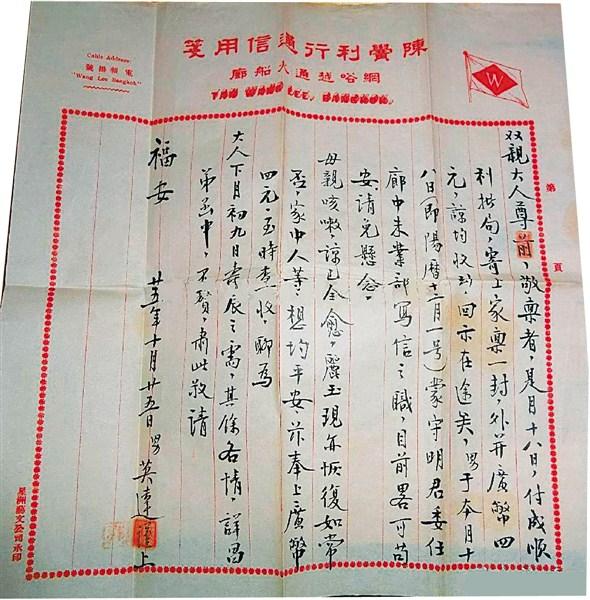 陳黌利行通信用箋
網咯越通大船廊
Cable Address:
"Wang Lee Bangkok"
電報掛號
W
第 頁
双親大人尊前,敬稟者,是月十八日,付成順
利批局,寄上家稟一封,外并廣幣四
元,諒均收到,回示在途矣,男于本月十
八日(即陽曆十二月一号)蒙守明君委任
廊中未業部寫信之職,目前畧可苟
安,請免懸念。
母親咳嗽,諒已全愈,麗玉現亦恢復如常
否,家中人等,想均平安,茲奉上廣幣
四元,至時查收,聊為
大人下月初九日壽辰之需,其餘各情,詳昌
弟函中,不贅,肅此敬請
福安
廿五年十月廿五日 男 英達謹上
星洲藝文公司承印